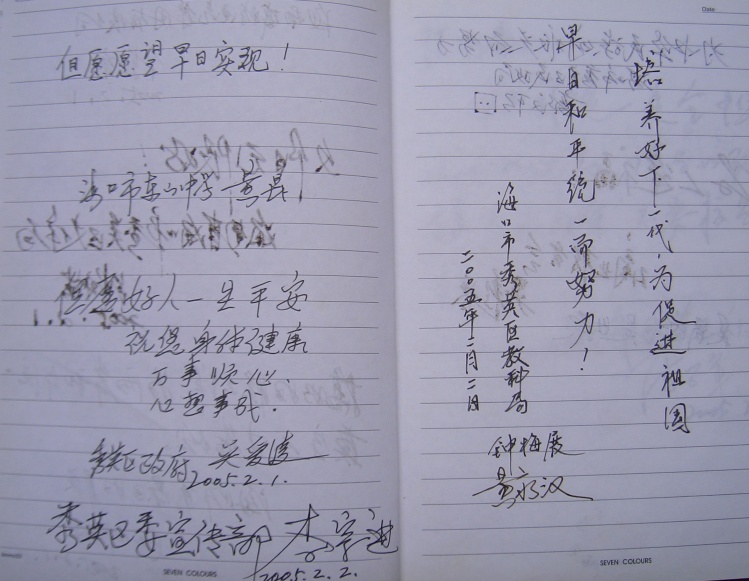 但愿愿望早日实现！
海口市东山中学 黄晁
但愿好人一生平安
祝您身体健康
万事顺心.
心想事成.
秀英区政府 吴爱清
2005.2.1.
秀英区委宣传部 李宗迪
2005.2.2.
SEVEN COLOURS
Date:
培养好下一代，为促进祖国
早日和平统一而努力！
海口市秀英区教科局
二00五年二月二日
钟梅展
黄永汉
SEVEN COLOURS